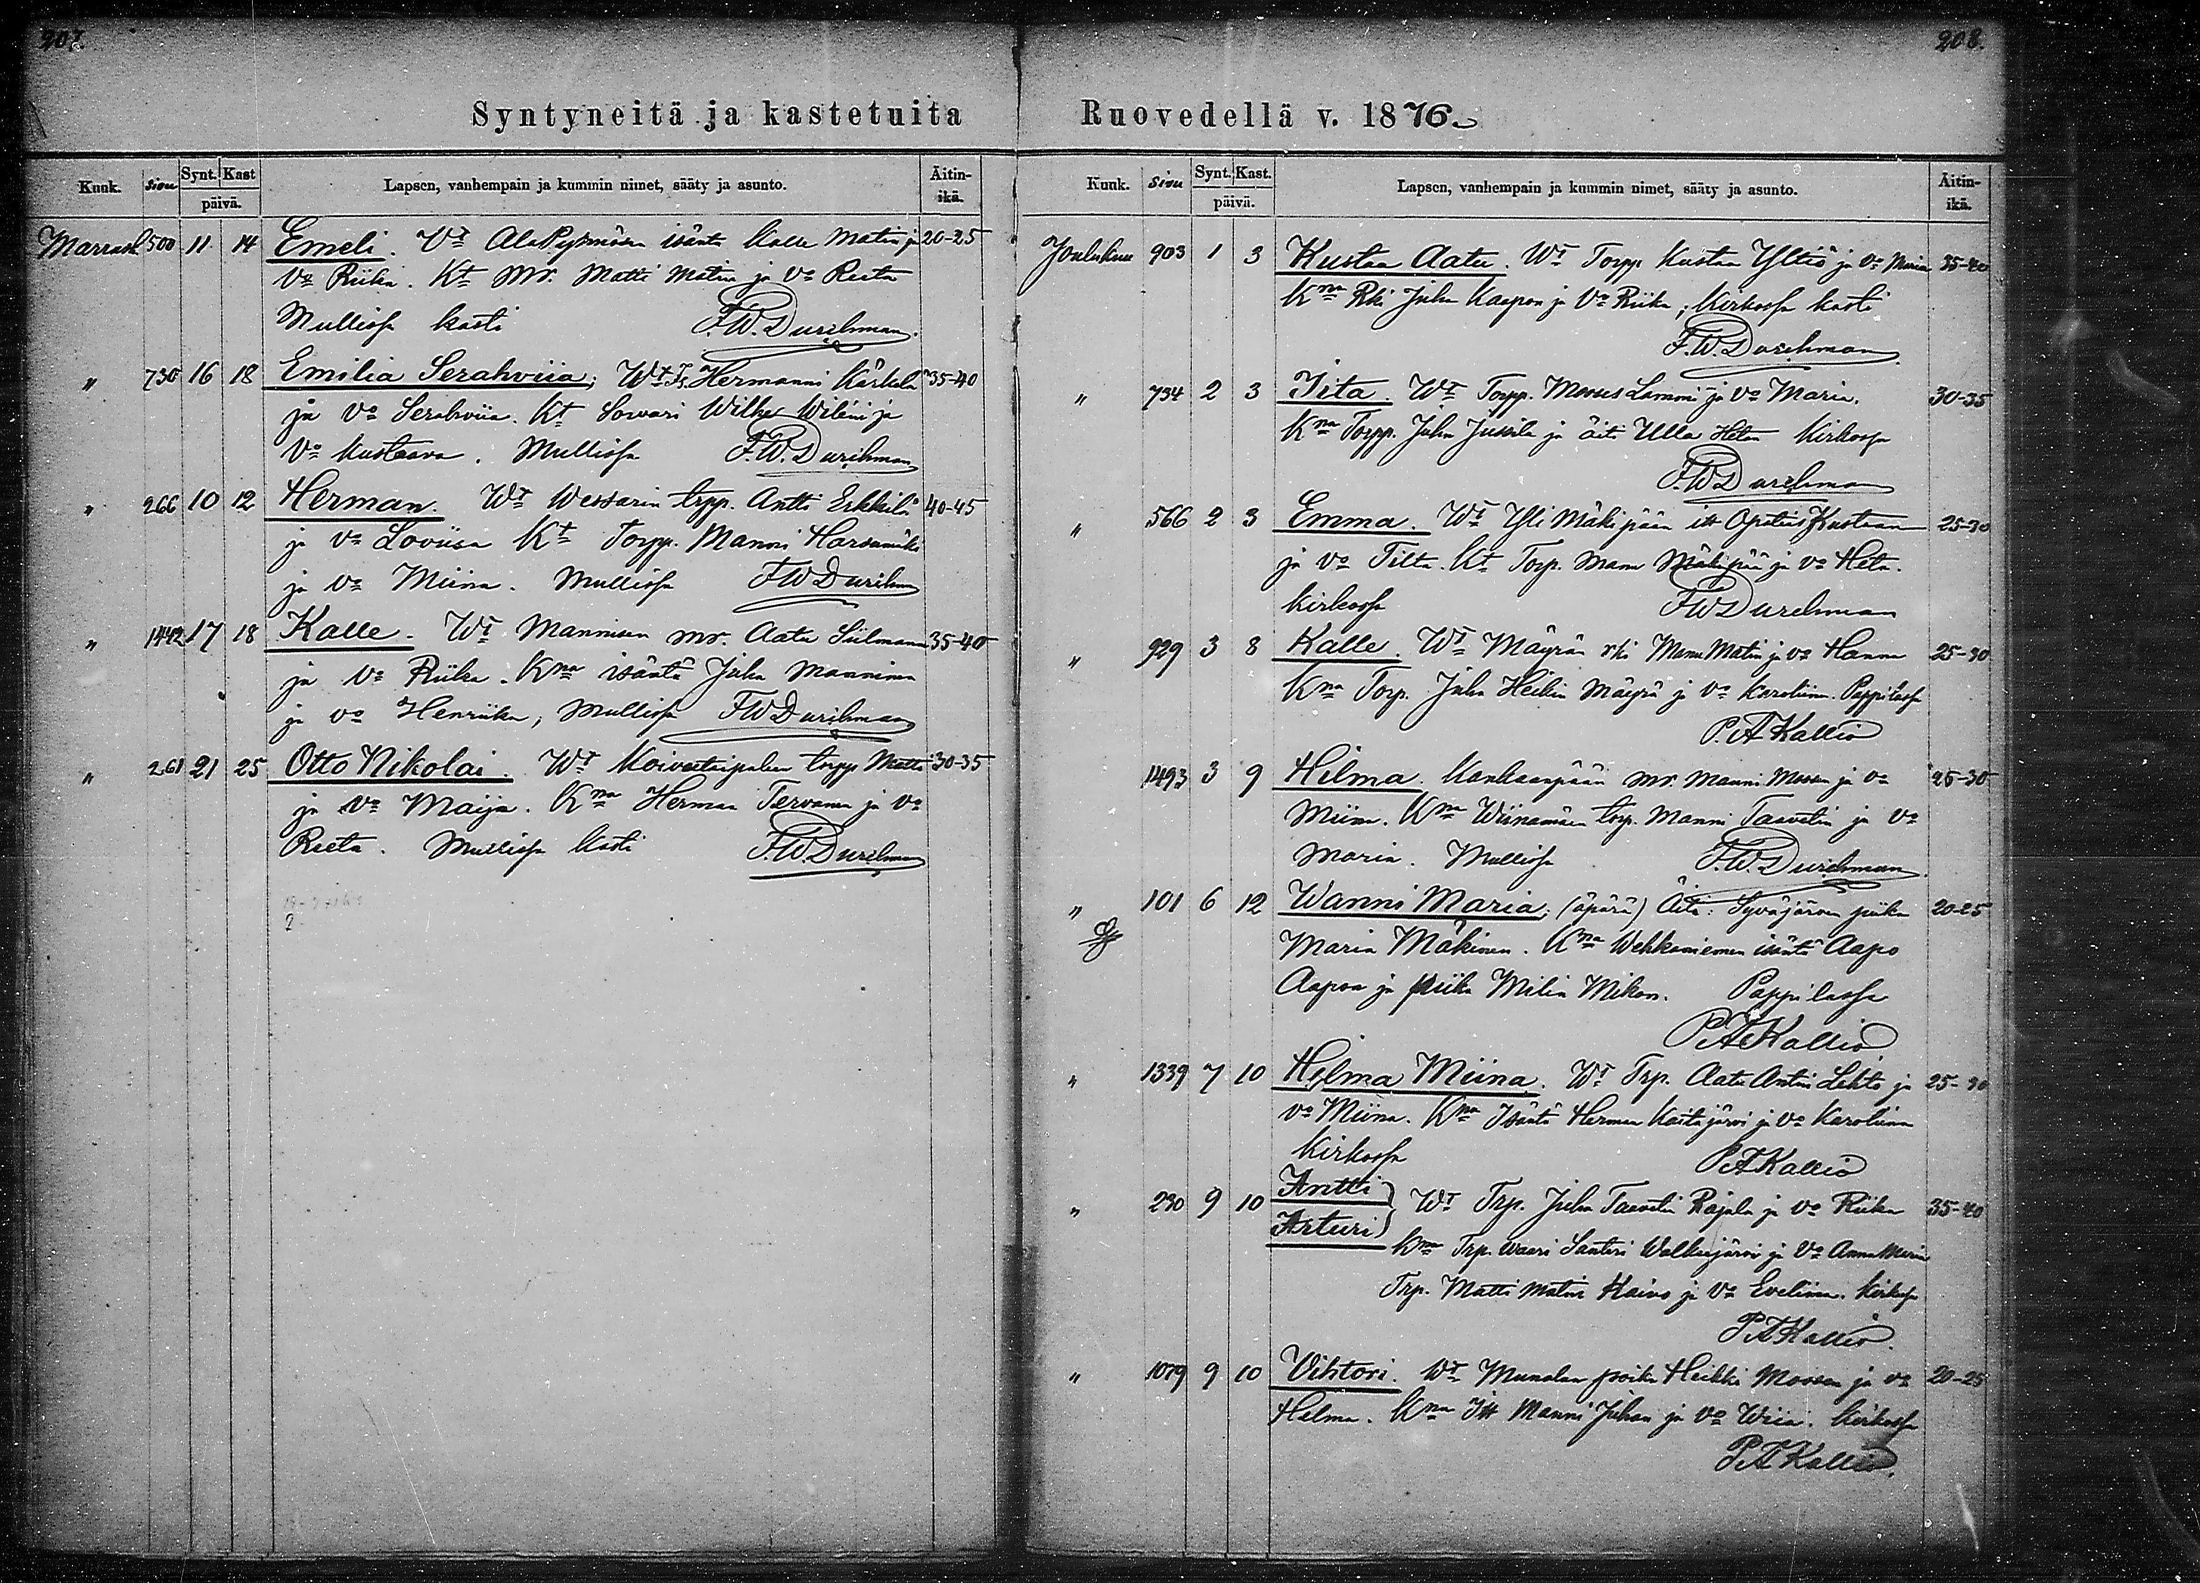 207.
Syntyneitä ja kastetuita
Kuuk. Sivu Synt. Kast päivä. Lapsen, vanhempain ja kummin nimet, sääty ja asunto. Äitin-ikä.
Marrask 500 11 14 Emeli. Vt isäntä Kalle Matin ja 20-25
va Riika. Kt mr. Matti Matin ja va Reeta
Mulliossa kasti F.W. Durchman.
" 730 16 18 Emilia Serahviia; Wt Is. Hermanni Kärkelä 35-40
ja va Serahviia. Kt Wilhe Wileni ja
va Kustaava. Mulliossa F.W. Durchman
" 266 10 12 Herman. Wt Wessarin trpp. Antti Erkkilä 40-45
ja va Loviisa Kt Torpp. Manni
ja va Miina. Mulliossa FW Durchman
" 1442 17 18 Kalle. Wt Mannisen mr. Aatu 35-40
ja va Riika. Kna isäntä Juha Manninen
ja va Henriika, Mulliossa FW Durchman
" 261 21 25 Otto Nikolai. Wt Koivutaipaleen torpp Matti 30-35
ja va Maija. Kna Herman Tervanen ja va
Reeta. Mulliossa kasti F.W. Durchman
208.
Ruovedellä v. 1876.
Kuuk. Sivu Synt. Kast. päivä. Lapsen, vanhempain ja kummin nimet, sääty ja asunto. Äitin-ikä.
Joulukuu 903 1 3 Kustaa Aatu. Wt Torpp Kustaa Yltiö ja va Maria 35-40
Kna Rki Juha Kaapon ja va Riika; Kirkossa kasti
F.W. Durchman
" 734 2 3 Iita. Wt Torpp. Mooses Lammi ja va Maria. 30-35
Kna Torpp. Juha Jussila ja äiti Ulla Heta Kirkossa
F.W Durchman
" 566 2 3 Emma. Wt Yli Mäkipään itt Kustaan 25-30
ja va Tilta. Kt Torp. Manu Mäkipää ja va Heta.
Kirkossa FW Durchman
" 929 3 8 Kalle. Wt Mäyrän rki Manu Matin ja va Hanna 25-30
Kna Torp. Juha Heikin Mäyrä ja va Karoliina. Pappilassa
P. A Kallio
1493 3 9 Hilma. Kankaanpään mr. Manni Moosen ja va 25-30
Miina. Kna Wiinamäen trp. Manni Taavetin ja va
Maria. Mulliossa F.W. Durchman.
" 101 6 12 Wanni Maria; (äpärä) Äiti: Syväjärven piika 20-25
Maria Mäkinen. Kna Wehkaniemen isäntä Aapo
Aapon ja piika Milia Mikon. Pappilassa
P A Kallio
" 1339 7 10 Hilma Miina. Wt Trp. Aatu Antin Lehto ja 25-30
va Miina. Kna Isäntä Herman Kaitajärvi ja va Karoliina
Kirkossa P A Kallio
" 230 9 10 Antti Wt Trp. Juha Taavetin Rajala ja va Riika 35-40
Arturi Kna Trp. waari Santeri Walkeejärvi ja va Anna Maria
Trp. Matti Matin Kaivo ja va Eveliina. Kirkossa
P A Kallio.
" 1079 9 10 Vihtori. Wt Munalan poika Heikki Moosen ja va 20-25
Helma. Kna Itt Manni Juhan ja va Wiia. Kirkossa
P. A Kallio.